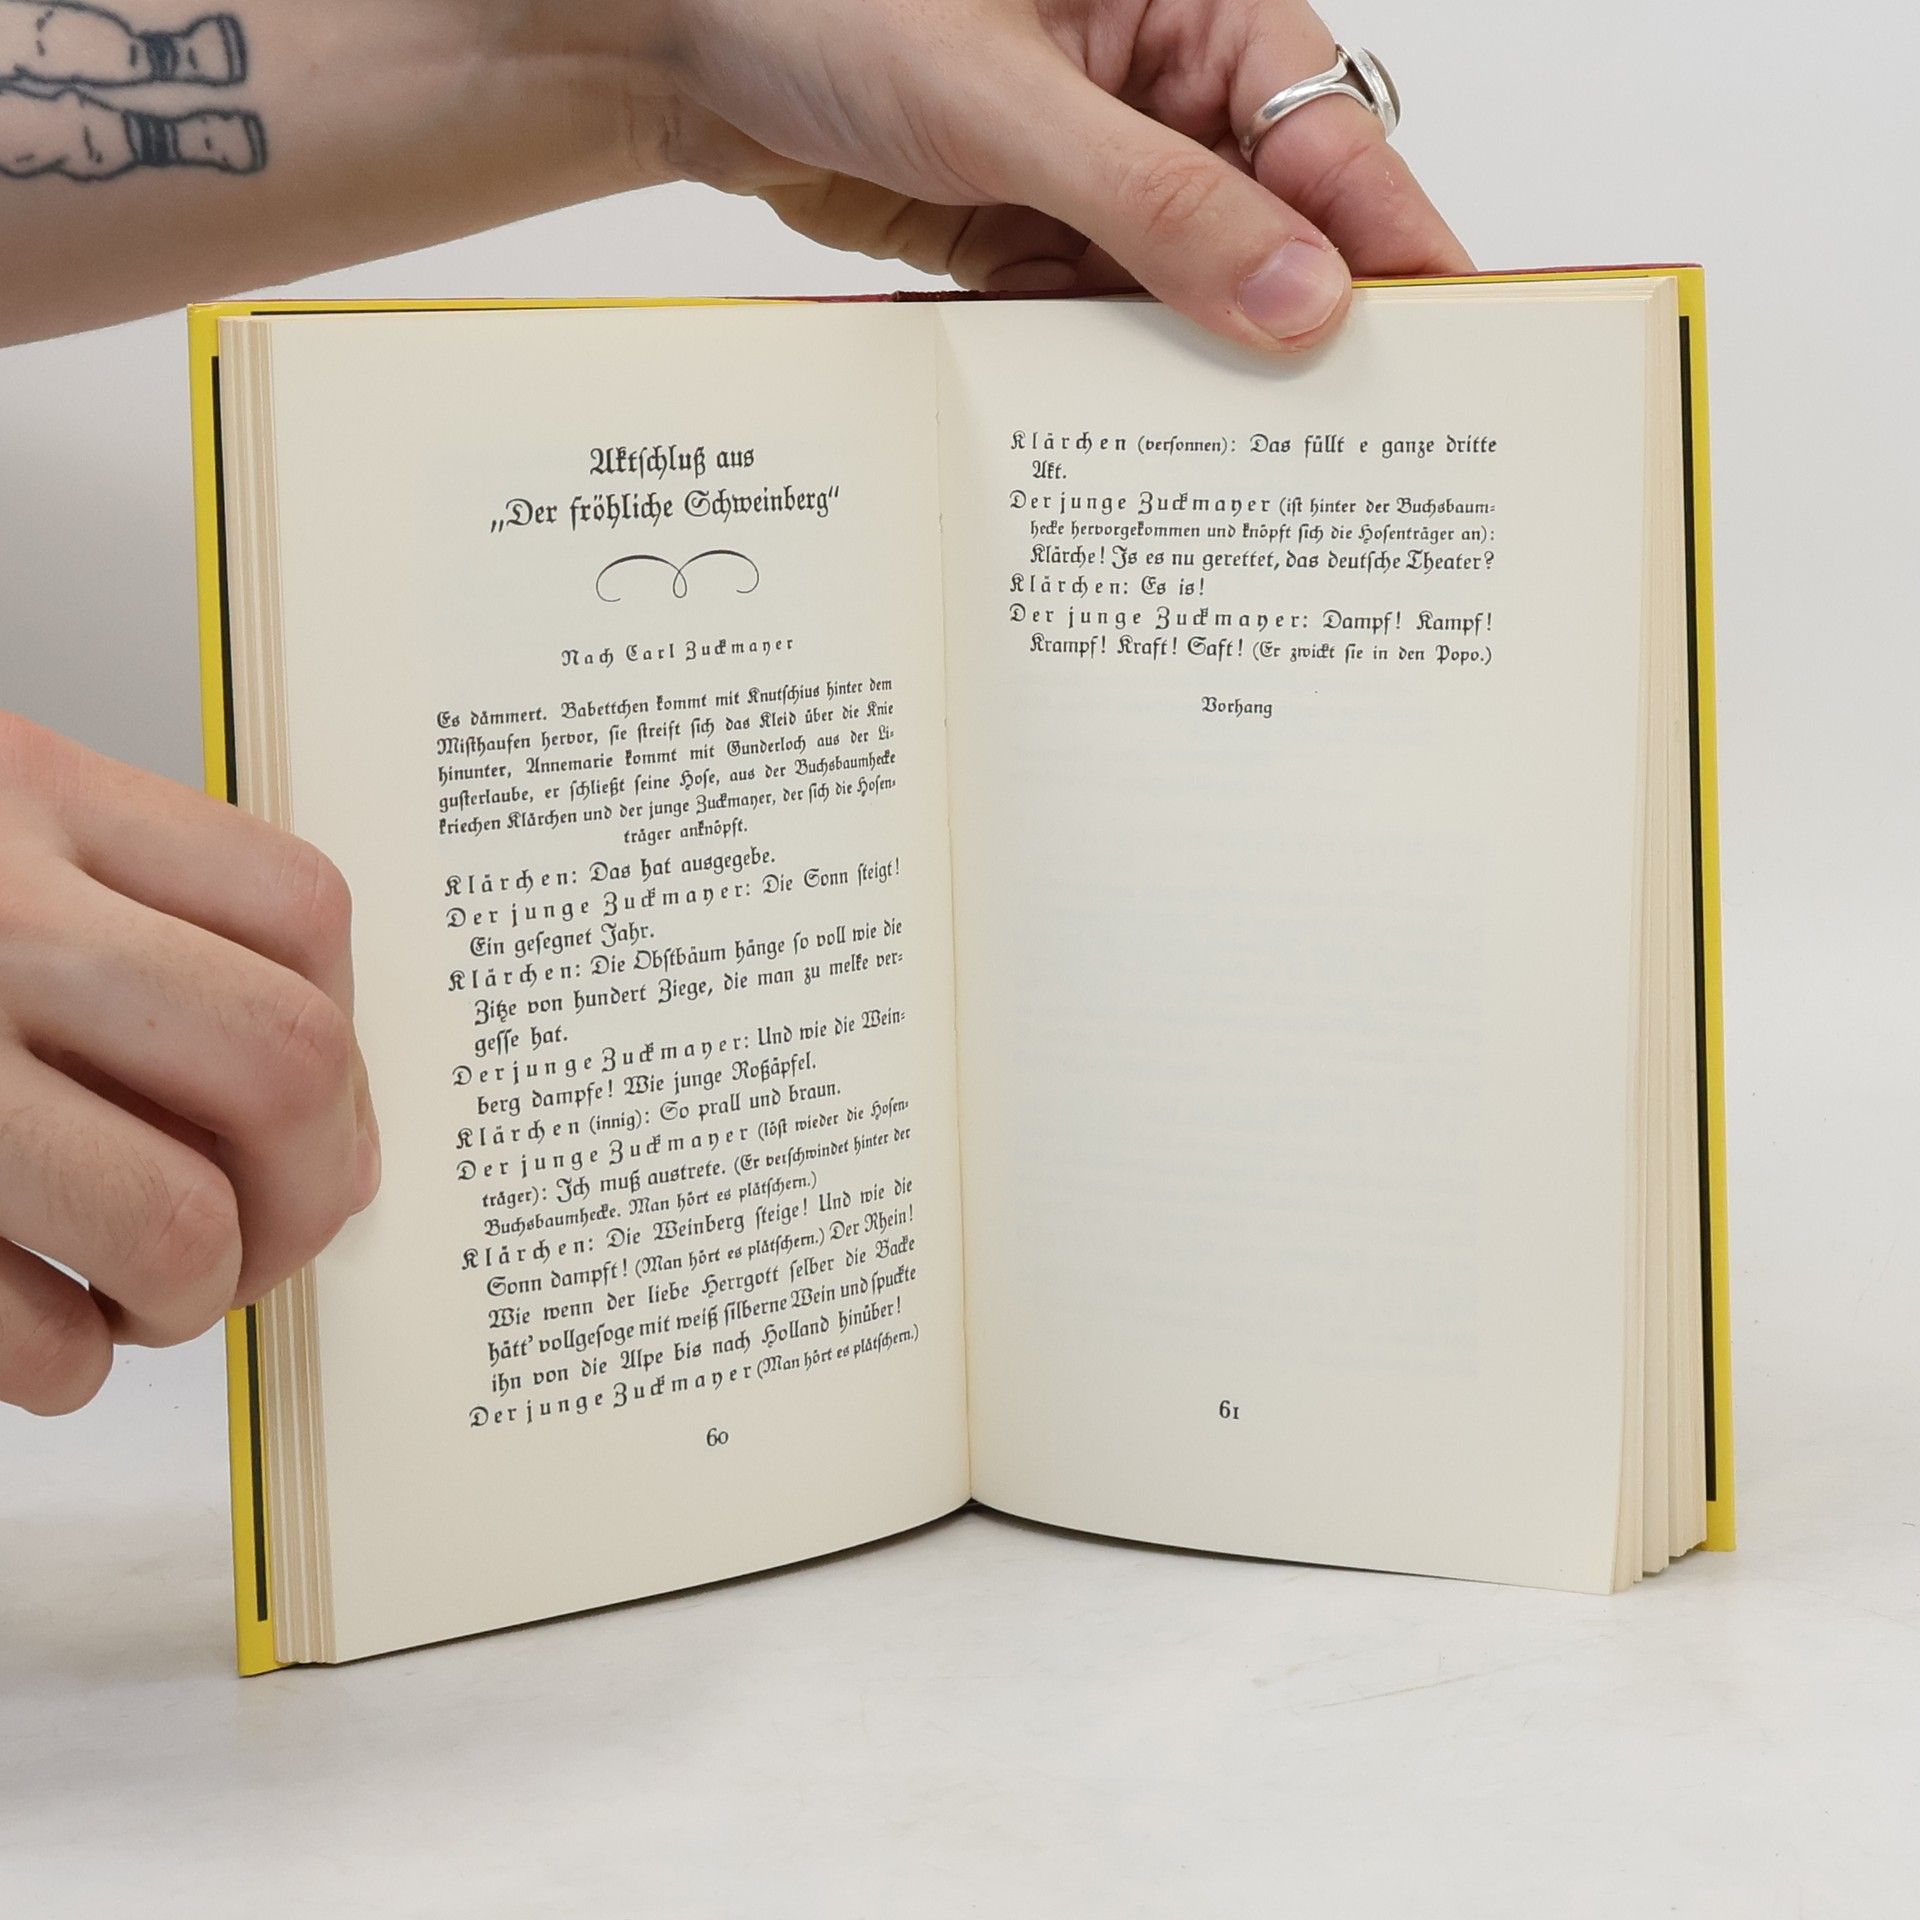 Aktſchluß aus
„Der fröhliche Schweinberg“
Nach Carl Zuckmayer
Es dämmert. Babettchen kommt mit Knutſchius hinter dem
Miſthaufen hervor, ſie ſtreift ſich das Kleid über die Knie
hinunter, Annemarie kommt mit Gunderloch aus der Li-
guſterlaube, er ſchließt ſeine Hoſe, aus der Buchsbaumhecke
kriechen Klärchen und der junge Zuckmayer, der ſich die Hoſen-
träger anknöpft.
Klärchen: Das hat ausgegebe.
Der junge Zuckmayer: Die Sonn ſteigt!
Ein geſegnet Jahr.
Klärchen: Die Obſtbäum hänge ſo voll wie die
Zitze von hundert Ziege, die man zu melke ver-
geſſe hat.
Der junge Zuckmayer: Und wie die Wein-
berg dampfe! Wie junge Roßäpfel.
Klärchen (innig): So prall und braun.
Der junge Zuckmayer (löſt wieder die Hoſen-
träger): Ich muß austrete. (Er verſchwindet hinter der
Buchsbaumhecke. Man hört es plätſchern.)
Klärchen: Die Weinberg ſteige! Und wie die
Sonn dampft! (Man hört es plätſchern.) Der Rhein!
Wie wenn der liebe Herrgott ſelber die Backe
hätt’ vollgeſoge mit weiß ſilberne Wein und ſpuckte
ihn von die Alpe bis nach Holland hinüber!
Der junge Zuckmayer (Man hört es plätſchern.)
60
Klärchen (verſonnen): Das füllt e ganze dritte
Akt.
Der junge Zuckmayer (iſt hinter der Buchsbaum-
hecke hervorgekommen und knöpft ſich die Hoſenträger an):
Klärche! Is es nu gerettet, das deutſche Theater?
Klärchen: Es is!
Der junge Zuckmayer: Dampf! Kampf!
Krampf! Kraft! Saft! (Er zwickt ſie in den Popo.)
Vorhang
61